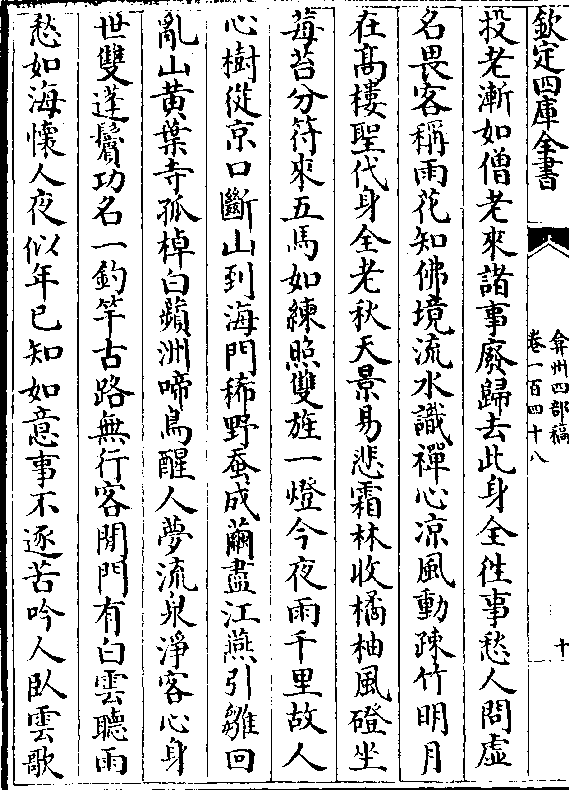 欽定四庫全書
弇州四部稿
卷一百四十八
十
投老漸如僧老來諸事廢歸去此身全徃事愁人問虛
名畏客稱雨花知佛境流水識禪心凉風動疎竹明月
在高樓聖代身全老秋天景易悲霜林收橘柚風磴坐
莓苔分符來五馬如練照雙旌一燈今夜雨千里故人
心樹從京口斷山到海門稀野蚕成繭盡江燕引雛回
亂山黃葉寺孤棹白蘋洲啼鳥醒人夢流泉淨客心身
世雙蓬鬢功名一釣竿古路無行客閒門有白雲聽雨
愁如海懷人夜似年已知如意事不逐苦吟人臥雲歌